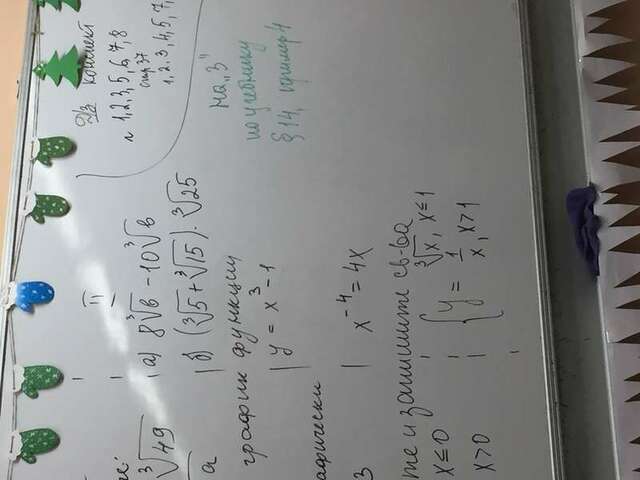 II
∛49 а) 8∛b − 10∛b
√a б) (∛5 + ∛15) · ∛25
график функции
y = x³ − 1
афически
3 x⁻⁴ = 4x
те и запишите св-ва
x ≤ 0 y = { ∛x, x ≤ 1
x > 0 1/x, x > 1
Д/з конспект
1, 2, 3, 5, 6, 7, 8
стр 37
1, 2, 3, 4, 5, 7,
на "3"
по учебнику
§ 14, пример 4